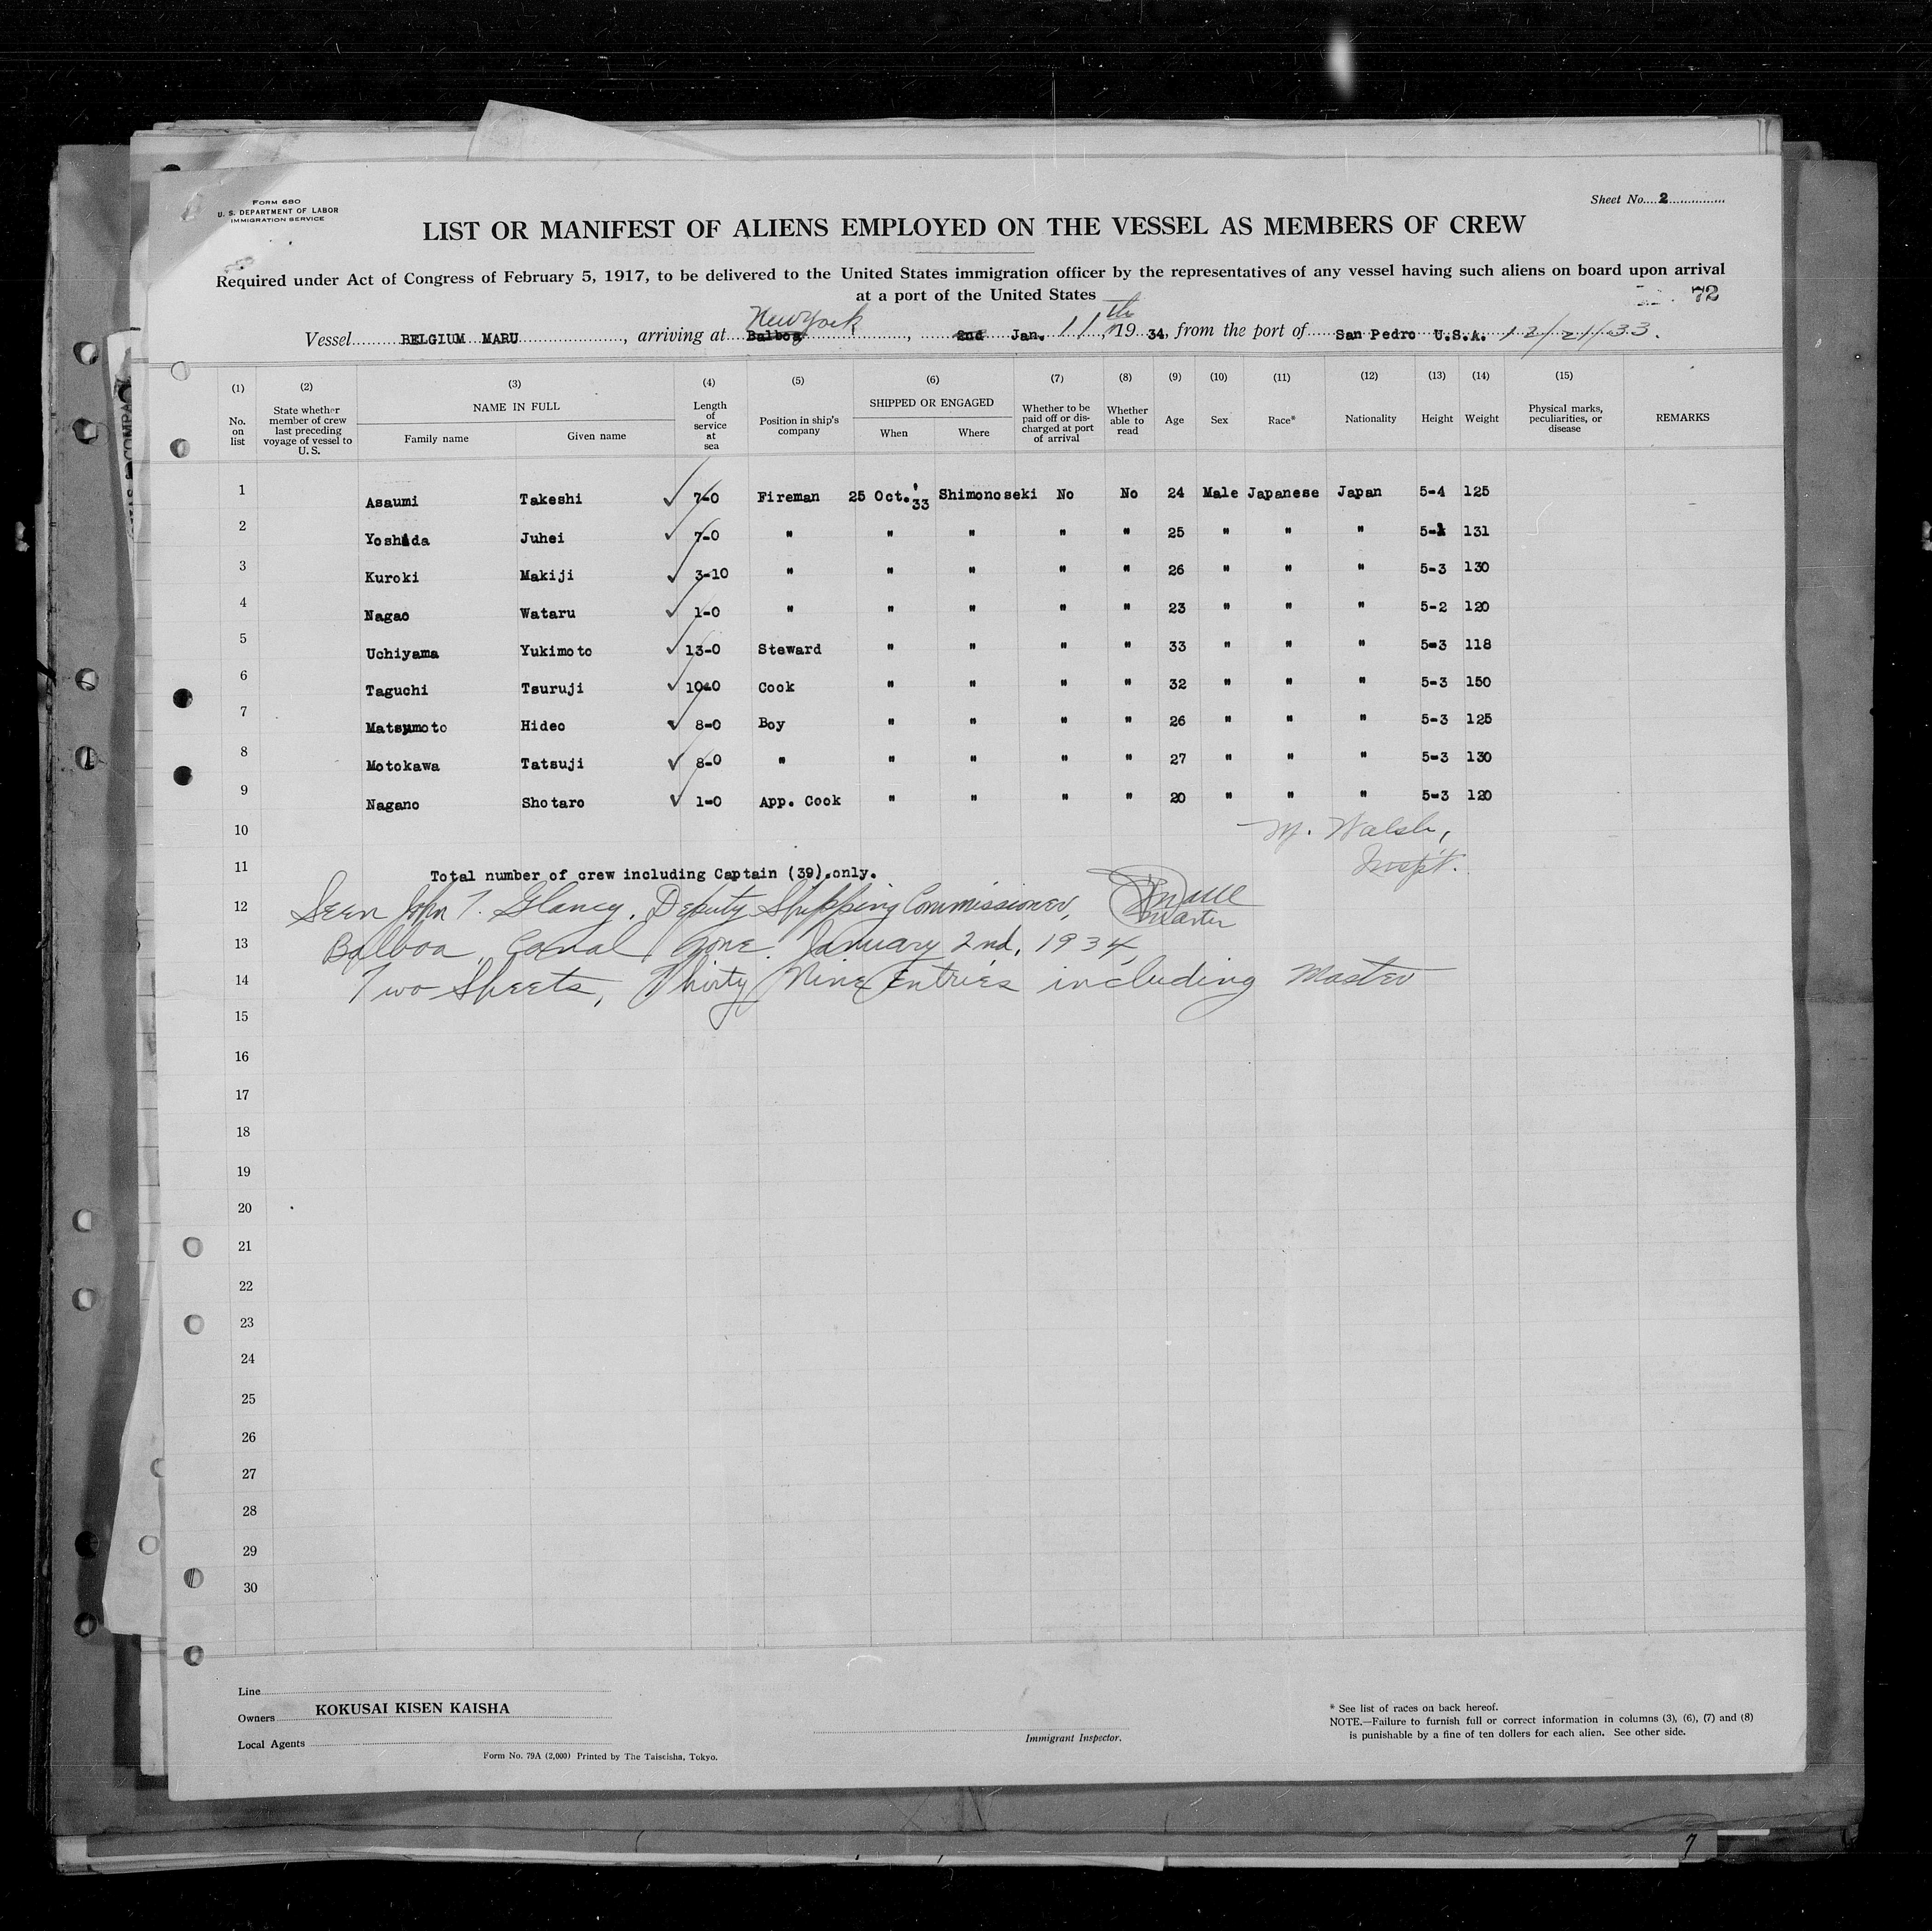 FORM 680
U. S. DEPARTMENT OF LABOR
IMMIGRATION SERVICE
Sheet No. 2
LIST OR MANIFEST OF ALIENS EMPLOYED ON THE VESSEL AS MEMBERS OF CREW
Required under Act of Congress of February 5, 1917, to be delivered to the United States immigration officer by the representatives of any vessel having such aliens on board upon arrival
at a port of the United States
72
New York
Vessel BELGIUM MARU, arriving at Balboa, 2nd Jan. 11th, 1934, from the port of San Pedro U.S.A. 12/21/33.
(1) (2) (3) (4) (5) (6) (7) (8) (9) (10) (11) (12) (13) (14) (15)
No. on list | State whether member of crew last preceding voyage of vessel to U. S. | NAME IN FULL | Family name | Given name | Length of service at sea | Position in ship's company | SHIPPED OR ENGAGED | When | Where | Whether to be paid off or discharged at port of arrival | Whether able to read | Age | Sex | Race* | Nationality | Height | Weight | Physical marks, peculiarities, or disease | REMARKS
1 Asaumi Takeshi ✓ 7-0 Fireman 25 Oct.'33 Shimonoseki No No 24 Male Japanese Japan 5-4 125
2 Yoshida Juhei ✓ 7-0 " " " " " 25 " " " 5- 131
3 Kuroki Makiji ✓ 3-10 " " " " " 26 " " " 5-3 130
4 Nagao Wataru ✓ 1-0 " " " " " 23 " " " 5-2 120
5 Uchiyama Yukimoto ✓ 13-0 Steward " " " " 33 " " " 5-3 118
6 Taguchi Tsuruji ✓ 10-0 Cook " " " " 32 " " " 5-3 150
7 Matsumoto Hideo ✓ 8-0 Boy " " " " 26 " " " 5-3 125
8 Motokawa Tatsuji ✓ 8-0 " " " " " 27 " " " 5-3 130
9 Nagano Shotaro ✓ 1-0 App. Cook " " " " 20 " " " 5-3 120
10 M. Walsh,
Inspt.
11 Total number of crew including Captain (39).only.
12 Seen John T. Glancy, Deputy Shipping Commissioner,
Master
13 Balboa, Canal Zone. January 2nd, 1934,
14 Two Sheets, Thirty Nine Entries including Master
15
16
17
18
19
20
21
22
23
24
25
26
27
28
29
30
Line
Owners KOKUSAI KISEN KAISHA
Local Agents
Form No. 79A (2,000) Printed by The Taiseisha, Tokyo.
Immigrant Inspector.
* See list of races on back hereof.
NOTE.—Failure to furnish full or correct information in columns (3), (6), (7) and (8)
is punishable by a fine of ten dollars for each alien. See other side.
7